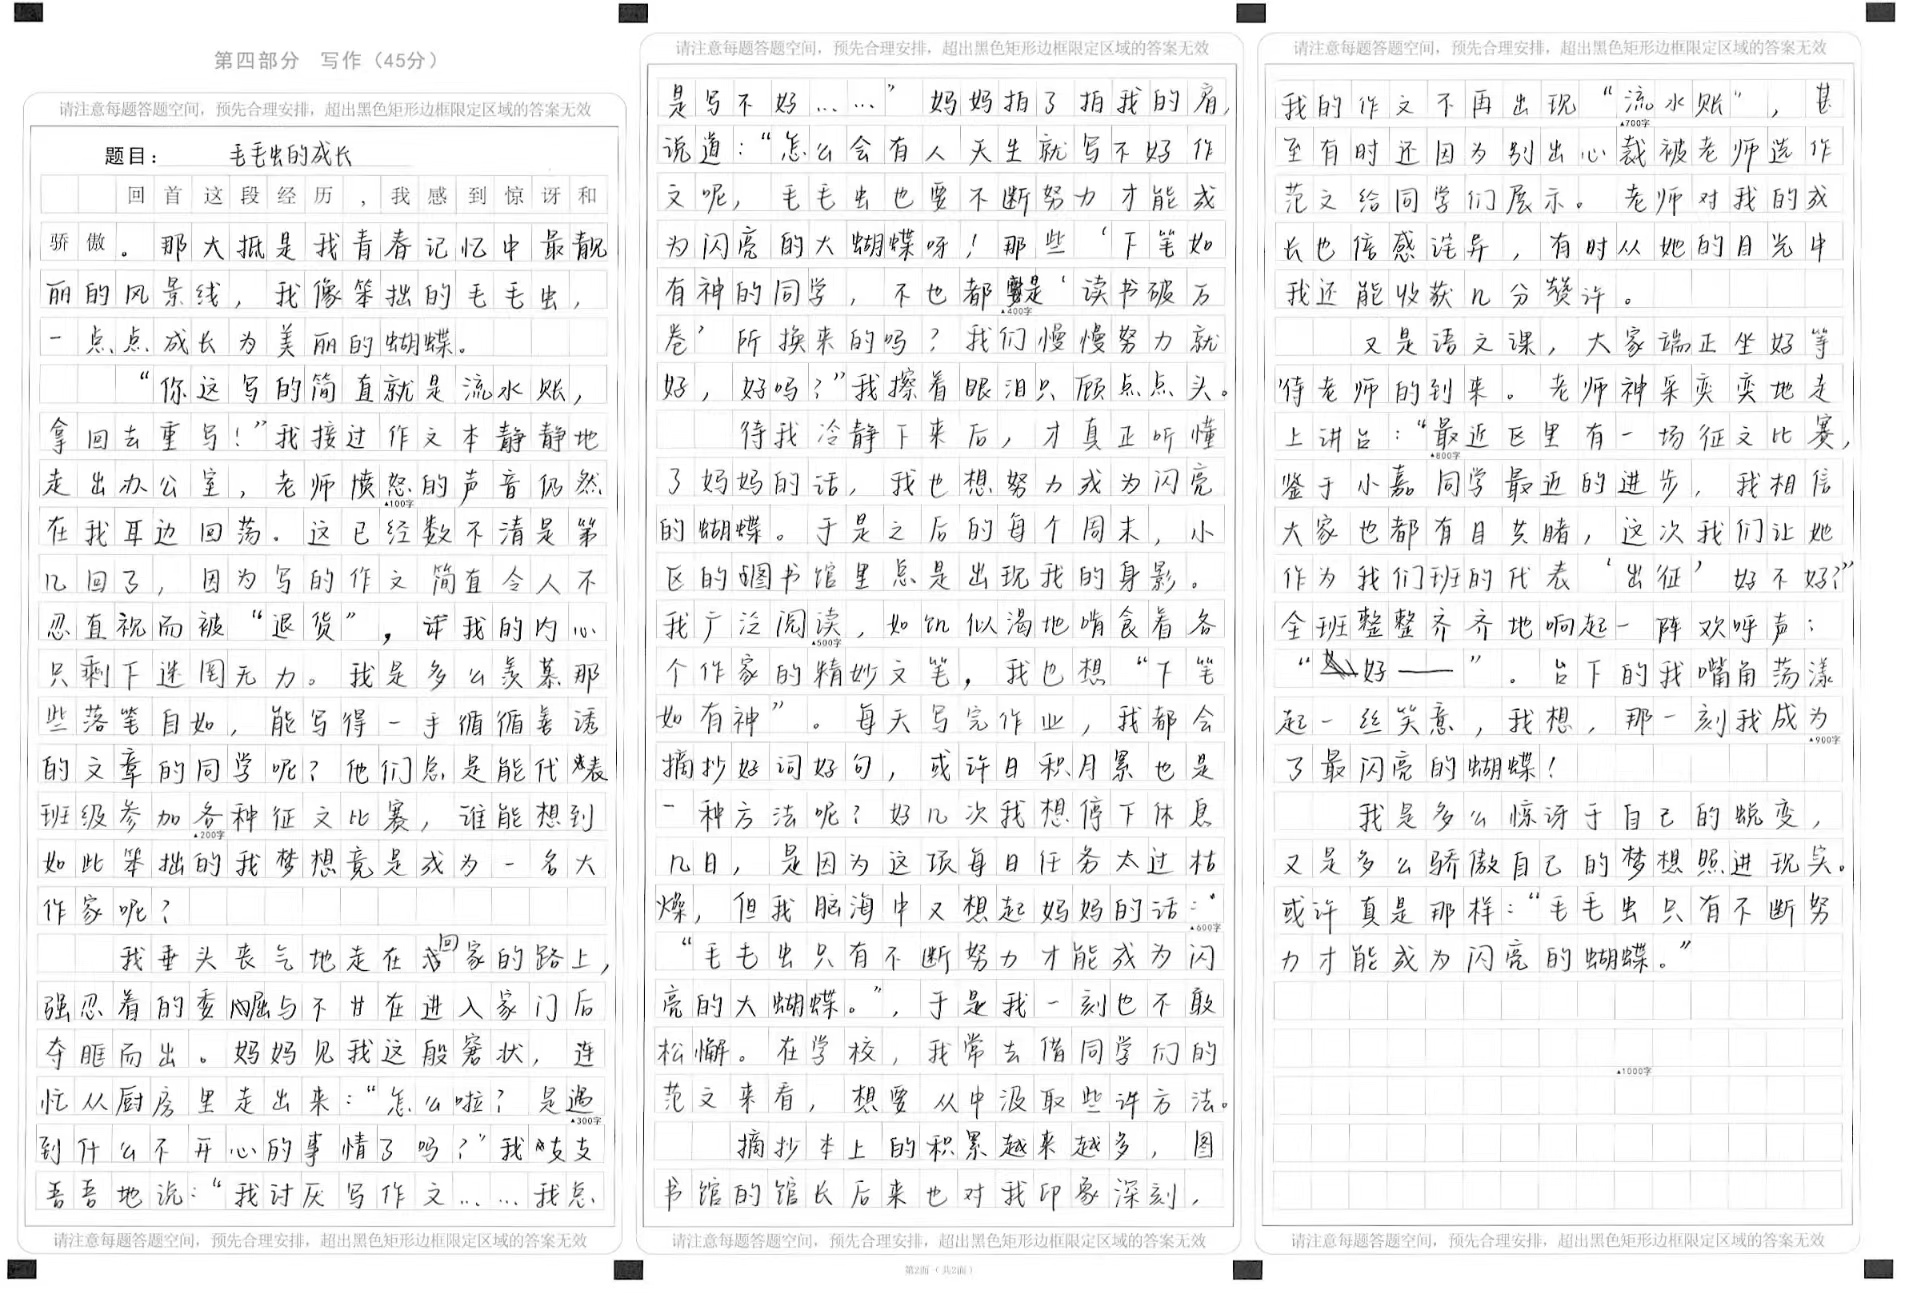 第四部分 写作（45分）
请注意每题答题空间，预先合理安排，超出黑色矩形边框限定区域的答案无效
题目：毛毛虫的成长
回首这段经历，我感到惊讶和
骄傲。那大抵是我青春记忆中最靓
丽的风景线，我像笨拙的毛毛虫，
一点点成长为美丽的蝴蝶。
“你这写的简直就是流水账，
拿回去重写！”我接过作文本静静地
走出办公室，老师愤怒的声音仍然
▲100字
在我耳边回荡。这已经数不清是第
几回了，因为写的作文简直令人不
忍直视而被“退货”，评我的内心
只剩下迷罔无力。我是多么羡慕那
些落笔自如，能写得一手循循善诱
的文章的同学呢？他们总是能代表
班级参加各种征文比赛，谁能想到
▲200字
如此笨拙的我梦想竟是成为一名大
作家呢？
我垂头丧气地走在回家的路上，
强忍着的委屈与不甘在进入家门后
夺眶而出。妈妈见我这般窘状，连
忙从厨房里走出来：“怎么啦？是遇
▲300字
到什么不开心的事情了吗？”我支支
吾吾地说：“我讨厌写作文……我总
请注意每题答题空间，预先合理安排，超出黑色矩形边框限定区域的答案无效
请注意每题答题空间，预先合理安排，超出黑色矩形边框限定区域的答案无效
是写不好……”妈妈拍了拍我的肩，
说道：“怎么会有人天生就写不好作
文呢，毛毛虫也要不断努力才能成
为闪亮的大蝴蝶呀！那些‘下笔如
有神的同学，不也都是‘读书破万
▲400字
卷’所换来的吗？我们慢慢努力就
好，好吗？”我擦着眼泪只顾点点头。
待我冷静下来后，才真正听懂
了妈妈的话，我也想努力成为闪亮
的蝴蝶。于是之后的每个周末，小
区的图书馆里总是出现我的身影。
我广泛阅读，如饥似渴地啃食着各
▲500字
个作家的精妙文笔，我也想“下笔
如有神”。每天写完作业，我都会
摘抄好词好句，或许日积月累也是
一种方法呢？好几次我想停下休息
几日，是因为这项每日任务太过枯
燥，但我脑海中又想起妈妈的话：
▲600字
“毛毛虫只有不断努力才能成为闪
亮的大蝴蝶。”，于是我一刻也不敢
松懈。在学校，我常去借同学们的
范文来看，想要从中汲取些许方法。
摘抄本上的积累越来越多，图
书馆的馆长后来也对我印象深刻，
请注意每题答题空间，预先合理安排，超出黑色矩形边框限定区域的答案无效
第2面（共2面）
请注意每题答题空间，预先合理安排，超出黑色矩形边框限定区域的答案无效
我的作文不再出现“流水账”，甚
▲700字
至有时还因为别出心裁被老师选作
范文给同学们展示。老师对我的成
长也倍感诧异，有时从她的目光中
我还能收获几分赞许。
又是语文课，大家端正坐好等
待老师的到来。老师神采奕奕地走
上讲台：“最近区里有一场征文比赛，
▲800字
鉴于小嘉同学最近的进步，我相信
大家也都有目共睹，这次我们让她
作为我们班的代表‘出征’好不好？”
全班整整齐齐地响起一阵欢呼声：
“好——”。台下的我嘴角荡漾
起一丝笑意，我想，那一刻我成为
▲900字
了最闪亮的蝴蝶！
我是多么惊讶于自己的蜕变，
又是多么骄傲自己的梦想照进现实。
或许真是那样：“毛毛虫只有不断努
力才能成为闪亮的蝴蝶。”
▲1000字
请注意每题答题空间，预先合理安排，超出黑色矩形边框限定区域的答案无效